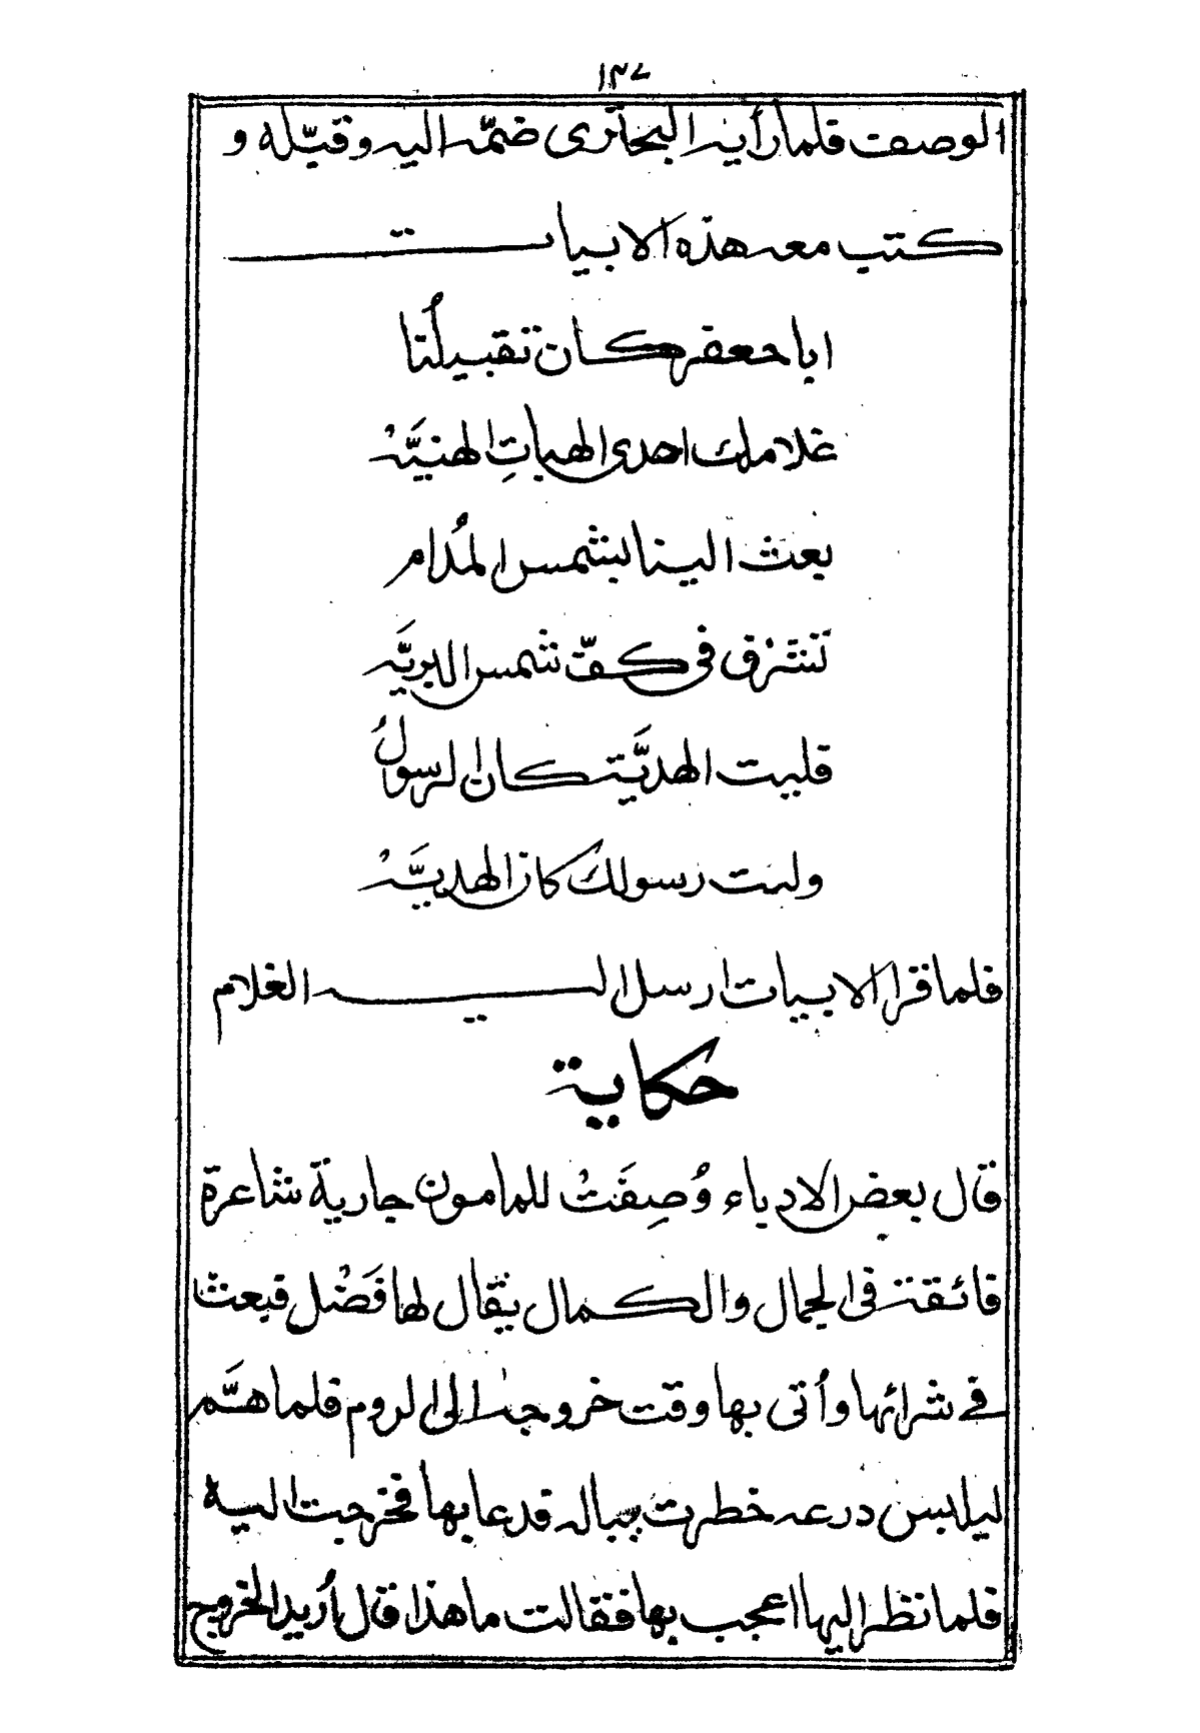 ١٣٧
الوصف فلما رأيه البحاتري ضمّه اليه وقبّله و
كتب معه هذه الابيات
ابا جعفر كان تقبيلُنا
غلامك احدى الهباتِ الهنيَّهْ
بعثت الينا بشمس المُدام
تنتَرق في كفّ شمس البريَّه
فليت الهديَّة كان الرسولُ
وليت رسولك كان الهديَّهْ
فلما قرا الابيات ارسل اليه الغلام
حكاية
قال بعض الادباء وُصِفَتْ للمامون جارية شاعرة
فائقة فى الجمال والكمال يقال لها فَضْل فبعث
فے شرائها واُتى بها وقت خروجه الى الروم فلما همَّ
ليلبس درعه خطرت بباله فدعا بها فخرجت اليه
فلما نظر اليها اعجب بها فقالت ما هذا قال اُريد الخروج